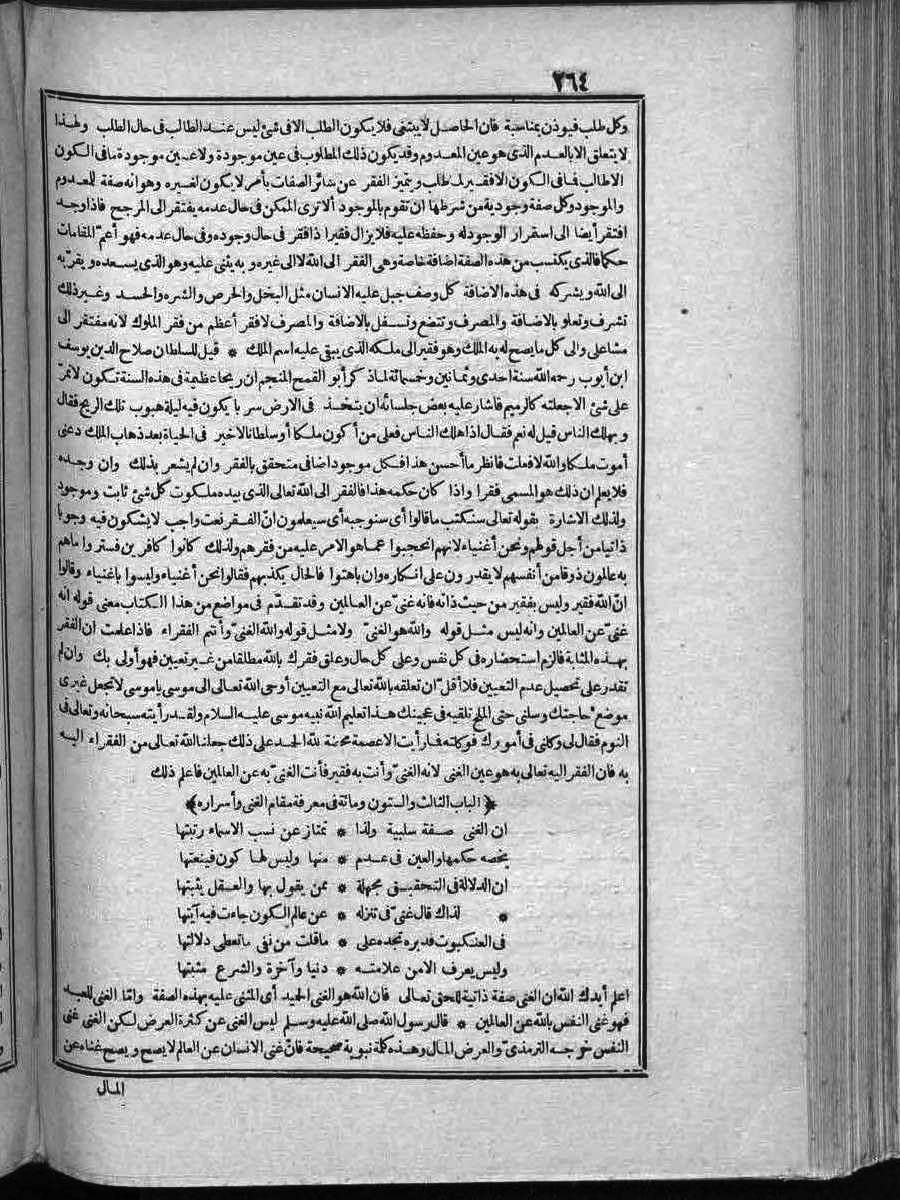 ٢٦٤
وكل طلب فيوذن بمناسبة فان الحاصل لا يبتغى فلا يكون الطلب الا فى شئ ليس عند الطالب فى حال الطلب ولهذا
لا يتعلق الا بالعدم الذى هو عين المعدوم وقد يكون ذلك المطلوب فى عين موجودة ولا عين موجودة ما فى الكون
الا طالب فما فى الكون الا فقير لما طلب ويتميز الفقر عن سائر الصفات بأمر لا يكون لغيره وهو انه صفة للمعدوم
والموجود وكل صفة وجودية من شرطها ان تقوم بالموجود ألا ترى الممكن فى حال عدمه يفتقر الى المرجح فاذا وجد
افتقر أيضا الى استمرار الوجود له وحفظه عليه فلا يزال فقيرا ذا فقر فى حال وجوده وفى حال عدمه فهو أعم المقامات
حكما فالذى يكتسب من هذه الصفة اضافة خاصة وهى الفقر الى الله لا الى غيره وبه يثنى عليه وهو الذى يسعده ويقربه
الى الله ويشركه فى هذه الاضافة كل وصف جبل عليه الانسان مثل البخل والحرص والشره والحسد وغير ذلك
تشرف وتعلو بالاضافة والمصرف وتتضع وتسفل بالاضافة والمصرف لا فقر أعظم من فقر الملوك لانه مفتقر الى
مشاعلى والى كل ما يصح له به الملك وهو فقير الى ملكه الذى يبقى عليه اسم الملك * قيل للسلطان صلاح الدين يوسف
ابن أيوب رحمه الله سنة احدى وثمانين وخمسمائة لما ذكر أبو القمح المنجم ان ريحا عظيمة فى هذه السنة تكون لا تمر
على شئ الا جعلته كالرميم فاشار عليه بعض جلسائه ان يتخذ فى الارض سربا يكون فيه ليلة هبوب تلك الريح فقال
ويهلك الناس قيل له نعم فقال اذا هلك الناس فعلى من أكون ملكا أو سلطانا لاخير فى الحياة بعد ذهاب الملك دعنى
أموت ملكا والله لا فعلت فانظر ما أحسن هذا فكل موجود اضافى متحقق بالفقر وان لم يشعر بذلك وان وجده
فلا يعلم ان ذلك هو المسمى فقرا واذا كان حكمه هذا فالفقر الى الله تعالى الذى بيده ملكوت كل شئ ثابت وموجود
ولذلك الاشارة بقوله تعالى سنكتب ما قالوا أى سنوجبه أى سيعلمون انّ الفقر نعت واجب لا يشكون فيه وجوبا
ذاتيا من أجل قولهم ونحن أغنياء لانهم انحجبوا عما هو الامر عليه من فقرهم ولذلك كانوا كافرين فستروا ما هم
به عالمون ذوقا من أنفسهم لا يقدرون على انكاره وان باهتوا فالحال يكذبهم فقالوا نحن أغنياء وليسوا باغنياء وقالوا
انّ الله فقير وليس بفقير من حيث ذاته فانه غنىّ عن العالمين وقد تقدّم فى مواضع من هذا الكتاب معنى قوله انه
غنىّ عن العالمين وانه ليس مثل قوله والله هو الغنىّ ولا مثل قوله والله الغنىّ وأنتم الفقراء فاذا علمت ان الفقر
بهذه المثابة فالزم استحضاره فى كل نفس وعلى كل حال وعلق فقرك بالله مطلقا من غير تعيين فهو أولى بك وان لم
تقدر على تحصيل عدم التعيين فلا أقلّ ان تعلقه بالله تعالى مع التعيين أوحى الله تعالى الى موسى يا موسى لا تجعل غيرى
موضع حاجتك وسلنى حتى الملح تلقيه فى عجينك هذا تعليم الله نبيه موسى عليه السلام ولقد رأيته سبحانه وتعالى فى
النوم فقال لى وكلنى فى أمورك فوكلته فما رأيت الا عصمة محضة لله الحمد على ذلك جعلنا الله تعالى من الفقراء اليه
به فان الفقر اليه تعالى به هو عين الغنى لانه الغنىّ وأنت به فقير فأنت الغنىّ به عن العالمين فاعلم ذلك
﴿الباب الثالث والستون ومائة فى معرفة مقام الغنى وأسراره﴾
ان الغنى صفة سلبية ولذا * تمتاز عن نسب الاسماء رتبتها
يخصه حكمها والعين فى عدم * منها وليس لها كون فينعتها
ان الدلالة فى التحقيق مجهلة * ممن يقول بها والعقل يثبتها
* لذاك قال غنىّ فى تنزله * عن عالم الكون جاءت فيه آيتها
فى العنكبوت فدبره تجده على * ماقلت من نفى ما تعطى دلالتها
وليس يعرف الا من علامته * دنيا وآخرة والشرع مثبتها
اعلم أيدك الله ان الغنى صفة ذاتية للحق تعالى فان الله هو الغنى الحميد أى المثنى عليه بهذه الصفة وامّا الغنى للعبد
فهو غنى النفس بالله عن العالمين * قال رسول الله صلى الله عليه وسلم ليس الغنى عن كثرة العرض لكن الغنى غنى
النفس خرجه الترمذىّ والعرض المال وهذه كلمة نبوية صحيحة فانّ غنى الانسان عن العالم لا يصح ويصح غناه عن
المال